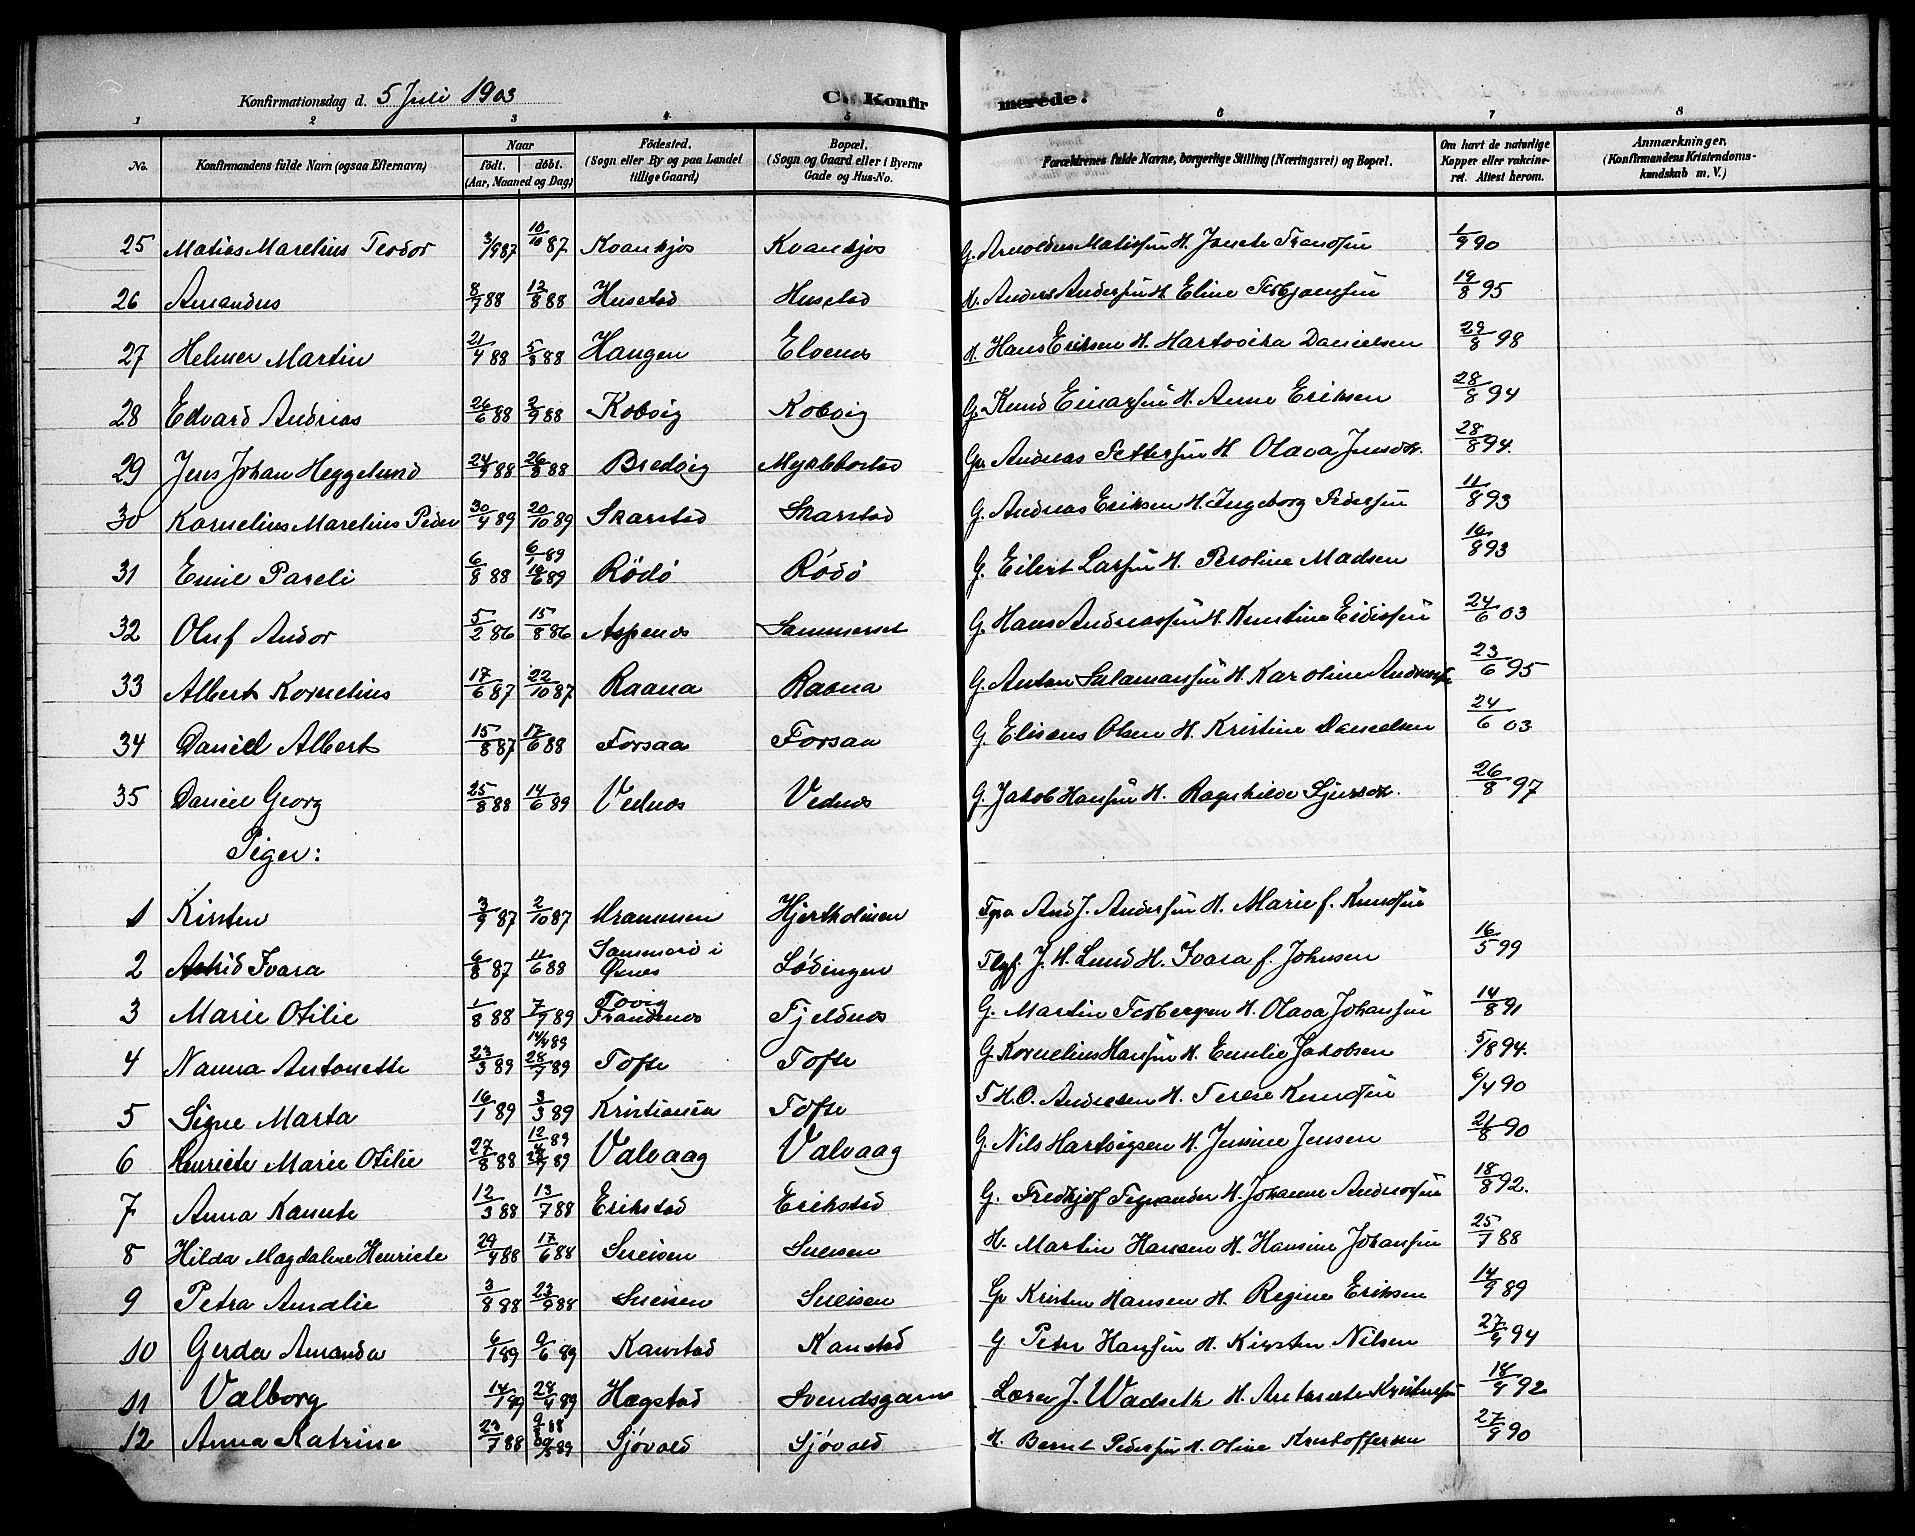 Konfirmationsdag d. 5 Juli 1903 C. Konfirmerede.
1 2 3 4 5 6 7 8
No. Konfirmandens fulde Navn (ogsaa Efternavn) Naar født. døbt. (Aar, Maaned og Dag) Fødested. (Sogn eller By og paa Landet tillige Gaard) Bopæl. (Sogn og Gaard eller i Byerne Gade og Hus-No. Forældrenes fulde Navne, borgerlige Stilling (Næringsvei) og Bopæl. Om havt de naturlige Kopper eller vakcineret. Attest herom. Anmærkninger, (Konfirmandens Kristendomskundskab m. V.)
25 Matias Marelius Teodor 3/9 87 10/10 87 Kvankjos Kvankjos G. Arnoldus Matissen H. Jansete Fransen 1/9 90
26 Amandus 8/7 88 12/8 88 Husstad Husstad H. Anders Andersen H. Eline Torbjørnsen 19/8 95
27 Helmer Martin 21/4 88 5/8 88 Haugen Elvenes H. Hans Eriksen H. Hartvika Danielsen 29/8 98
28 Edvard Andreas 26/6 88 2/9 88 Kobvig Kobvig G. Knud Einarsen H. Anne Eriksen 28/8 94
29 Jens Johan Heggelund 24/7 88 26/8 88 Bredvig Myklebostad G. Andreas Pettersen H. Olava Jensdtr. 28/8 94.
30 Kornelius Marelius Peder 30/4 89 20/10 89 Skarstad Skarstad G. Andreas Eriksen H. Ingeborg Pedersen 11/8 93
31 Emil Pareli 6/8 88 6/1 89 16/6 89 Rødø Rødø G. Eilert Larsen H. Peroline Madsen 16/8 93
32 Oluf Andor 5/2 86 15/8 86 Aspenes Sammerset G. Hans Andreassen H. Kenstine Eidissen 24/6 03
33 Albert Kornelius 17/6 87 22/10 87 Raana Raana G. Anton Salamonsen H. Karoline Andreassen 23/6 95
34 Daniel Albert 15/8 87 17/6 88 Forsaa Forsaa G. Eliseus Olsen H. Kristine Danielsen 24/6 03
35 Daniel Georg 25/8 88 14/6 89 Vednes Vednes G. Jakob Hansen H. Ragnhilde Sjursdtr. 26/8 97
Piger:
1 Kirsten 3/9 87 2/10 87 Hrammen Hjertholmen And. J. Andersen H. Marie f. Knudsen
2 Astrid Ivara 6/8 87 11/6 88 Sammerø i Øxnes Lødingen Tlgf. J. H. Lund H. Ivara f. Johnsen 16/5 99
3 Marie Otilie 1/8 88 7/7 89 Tovig Trandenes Fjeldnes G. Martin Torbergsen H. Olava Johansen 14/8 91
4 Nanna Antonette 23/3 89 14/4 89 28/7 89 Tofte Tofte G. Kornelius Hansen H. Emelie Jakobsen 5/8 94.
5 Signe Marta 16/1 89 3/3 89 Kristiania Tofte H. O. Andresen H. Terese Knudsen 6/4 90
6 Henriete Marie Otilie 27/8 88 12/4 89 28/7 89 Valvaag Valvaag G. Nils Hartvigsen H. Jensine Jensen 21/8 90
7 Anna Kanute 12/3 88 13/7 88 Erikstad Erikstad G. Fredhjof Tegnander H. Johanne Andersen 18/8 92.
8 Hilda Magdalene Henriete 29/4 88 17/6 88 Sneisen Sneisen H. Martin Hansen H. Hansine Johansen 25/7 88
9 Petra Amalie 3/8 88 23/9 88 Sneisen Sneisen G. Kristen Hansen H. Regine Eriksen 14/9 89
10 Gerda Amanda 6/1 89 9/6 89 Kanstad Kanstad G Peter Hansen H. Kirsten Nilsen 27/9 94
11 Valborg 14/1 89 28/4 89 Hægstad Svendsgam Lærer J. Wadseth H. Antonete Kristensen 18/9 92
12 Anna Katrine 23/7 88 9/8 88 30/5 89 Sjøvold Sjøvold H. Bernt Pedersen H. Oline Kristoffersen 27/9 90